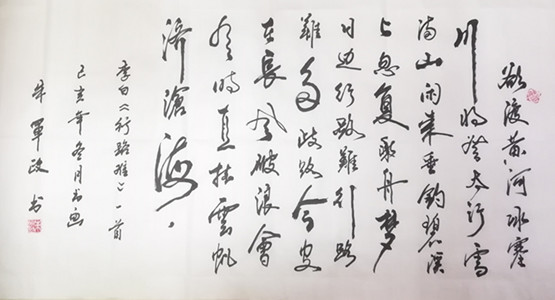 欲渡黄河冰塞
川将登太行雪
满山闲来垂钓碧溪
上忽复乘舟梦
日边行路難行路
難多歧路今安
在長风破浪會
有時直挂雲帆
济滄海
李白《行路難》一首
己亥年冬月书
軍政书